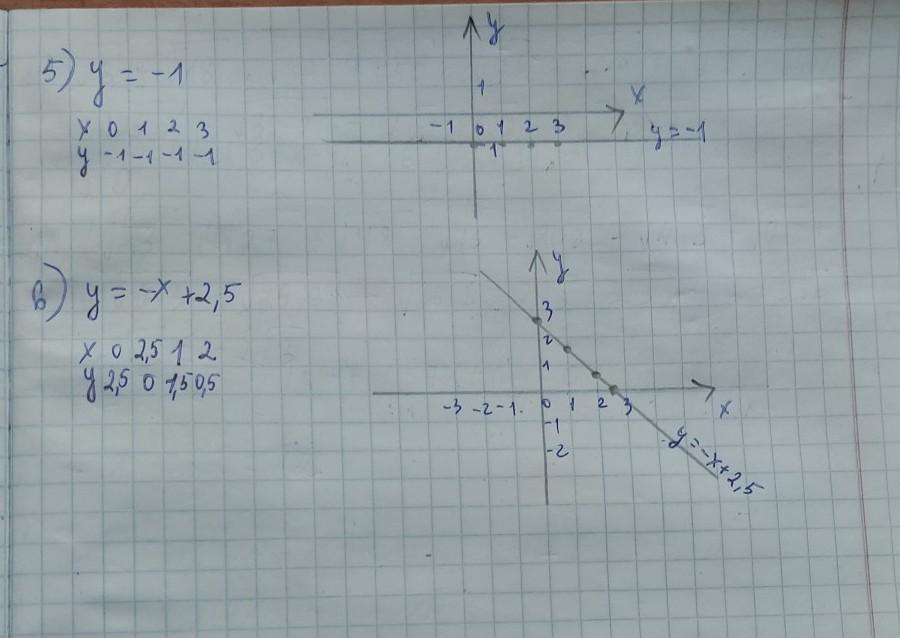 5) y = -1
x 0 1 2 3
y -1 -1 -1 -1
y
1
x
-1 0 1 2 3
y = -1
-1
в) y = -x + 2,5
x 0 2,5 1 2
y 2,5 0 1,5 0,5
y
3
2
1
-3 -2 -1 0 1 2 3
x
-1
-2
y = -x + 2,5